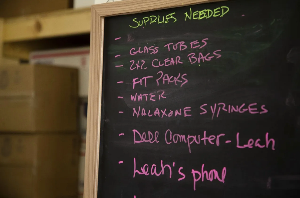 SUPPLIES NEEDED
-
- GLASS TUBES
- 2x2 CLEAR BAGS
- FIT PACKS
- WATER
- NALAXONE SYRINGES
- DELL COMPUTER - LEAH
- Leah's phone